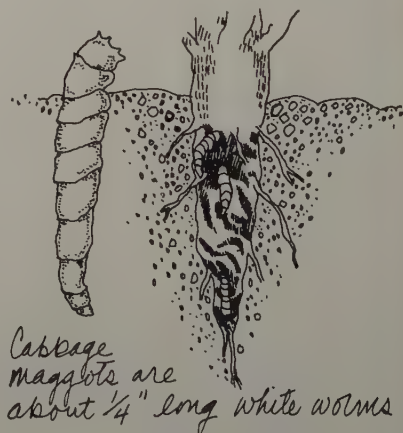 Cabbage
maggots are
about 1/4" long white worms